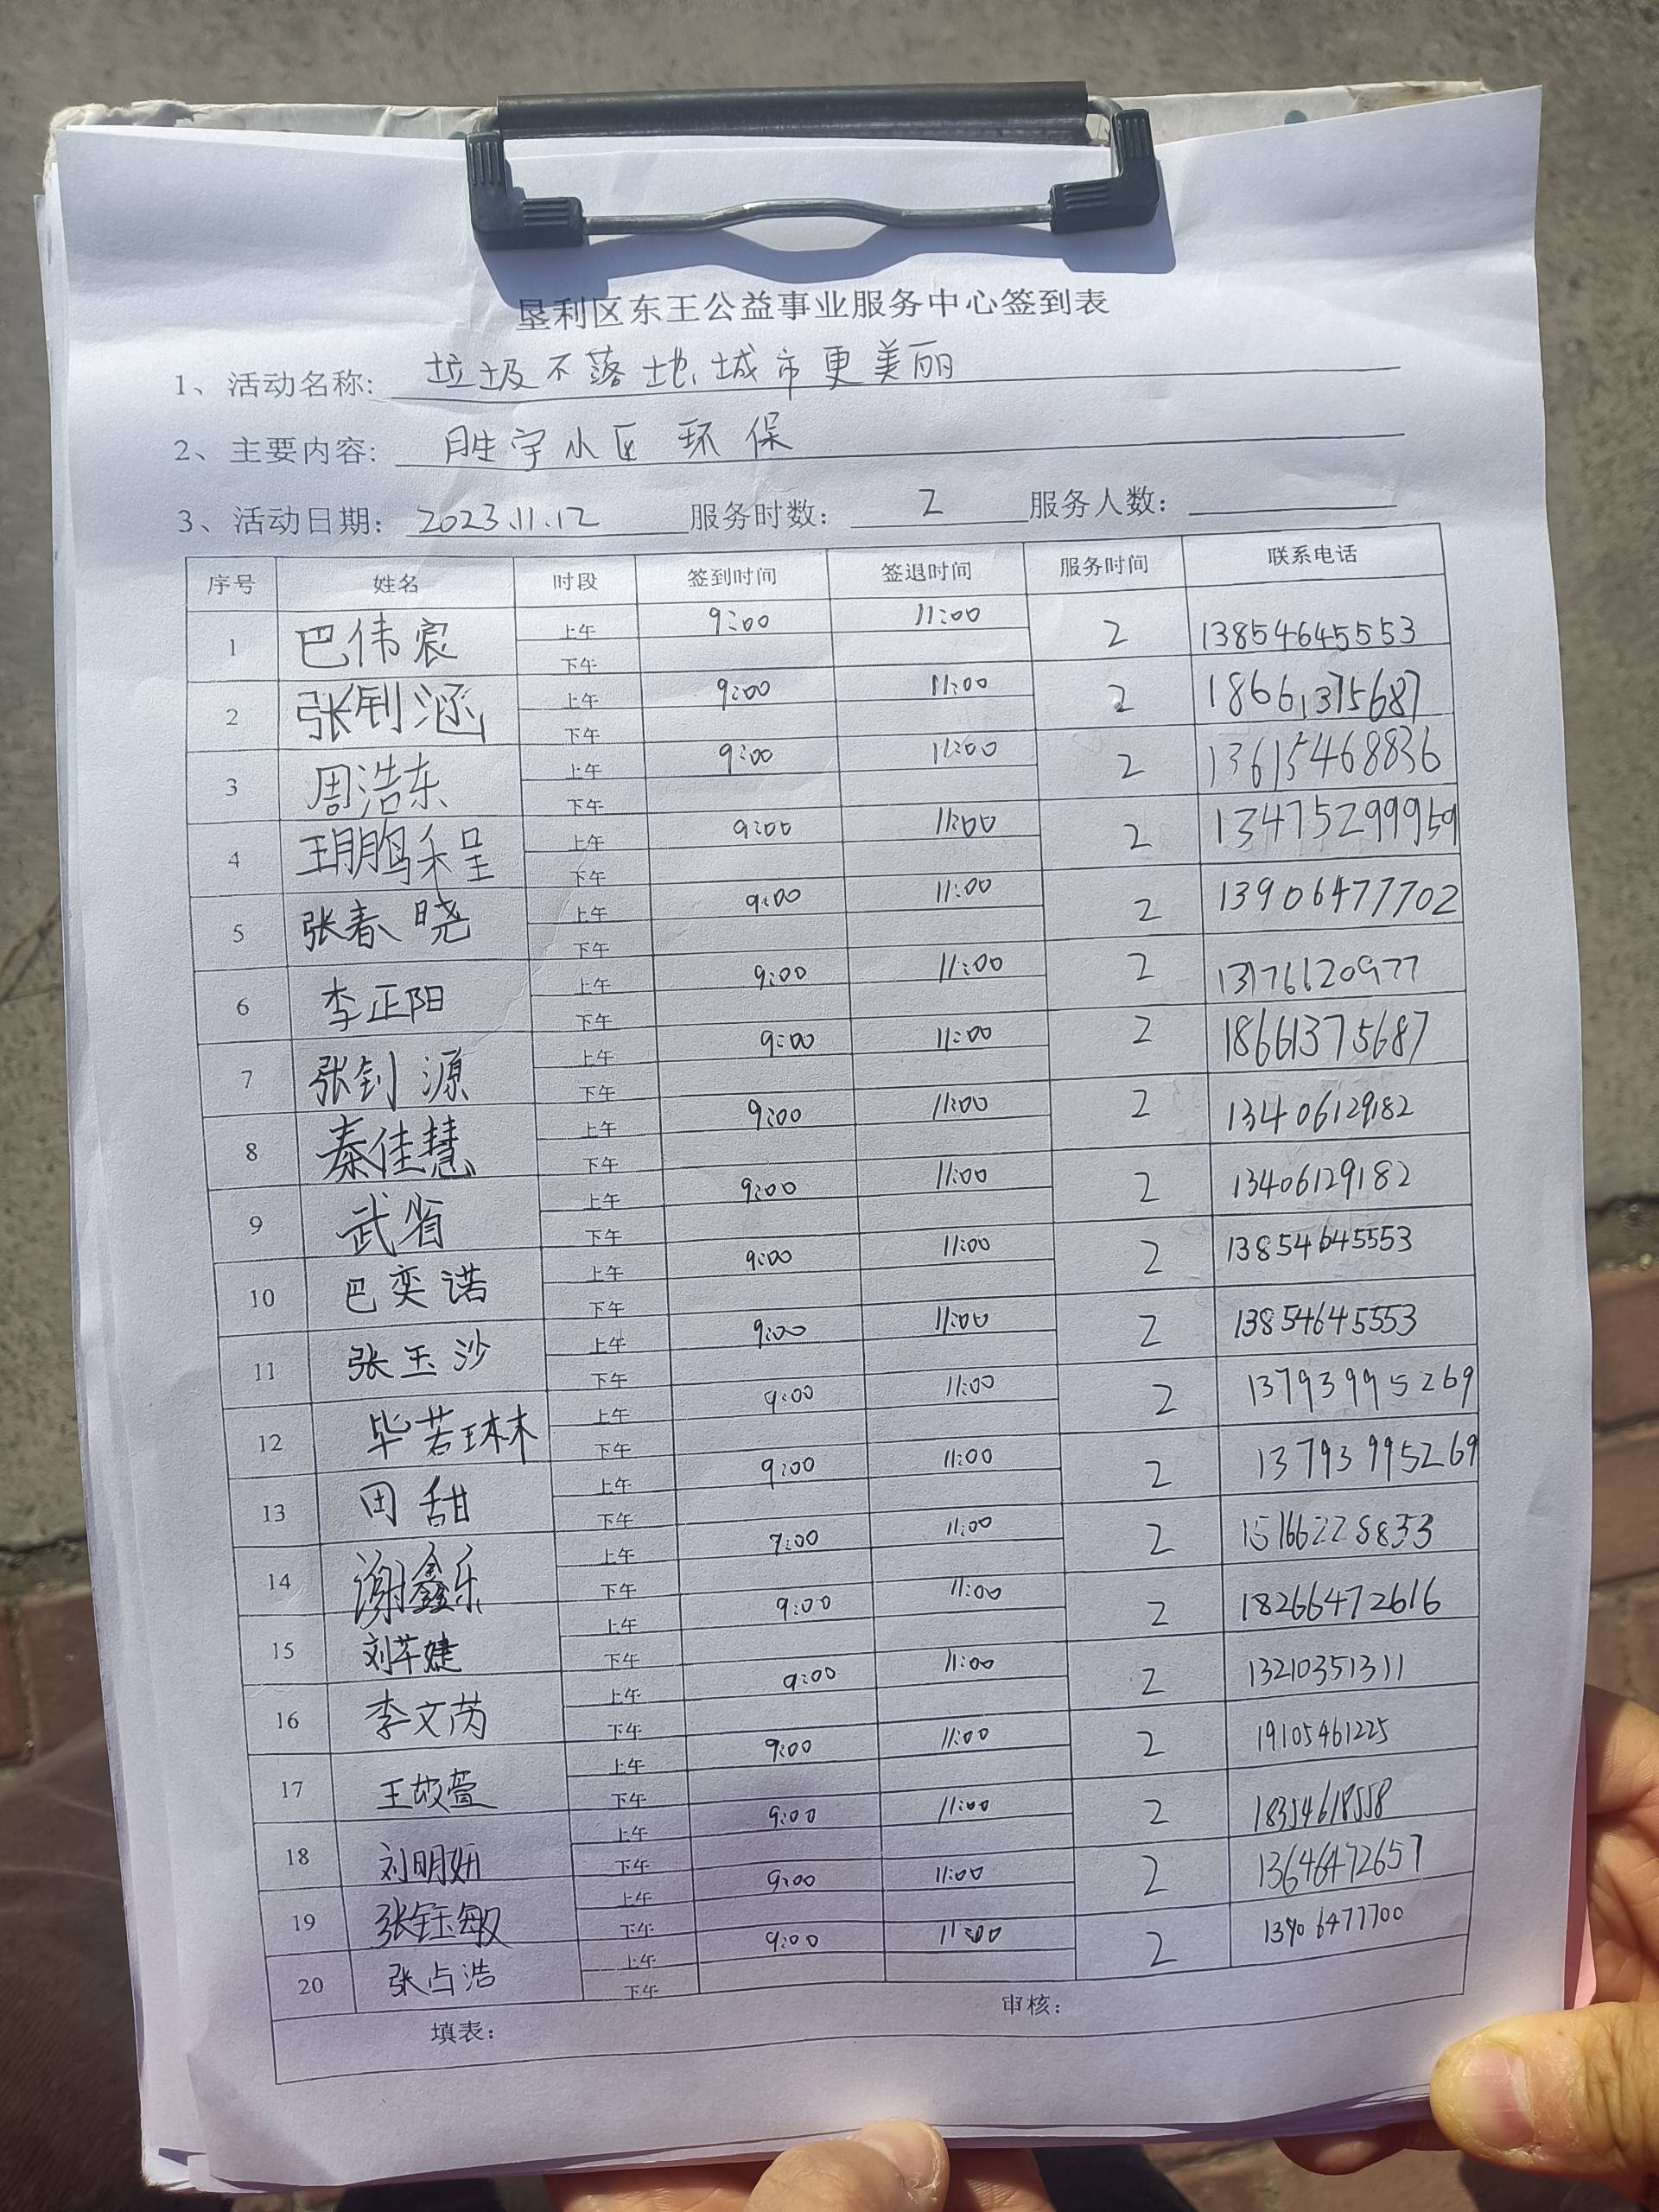 垦利区东王公益事业服务中心签到表
1、活动名称: 垃圾不落地,城市更美丽
2、主要内容: 胜宇小区 环保
3、活动日期: 2023.11.12 服务时数: 2 服务人数:
序号 姓名 时段 签到时间 签退时间 服务时间 联系电话
1 巴伟宸 上午 9:00 11:00 2 13854645553
下午
2 张钊涵 上午 9:00 11:00 2 18661375687
下午
3 周浩东 上午 9:00 11:00 2 13615468836
下午
4 王鹏程 上午 9:00 11:00 2 13475299959
下午
5 张春晓 上午 9:00 11:00 2 13906477702
下午
6 李正阳 上午 9:00 11:00 2 13176120977
下午
7 张钊源 上午 9:00 11:00 2 18661375687
下午
8 秦佳慧 上午 9:00 11:00 2 13406129182
下午
9 武省 上午 9:00 11:00 2 13406129182
下午
10 巴奕诺 上午 9:00 11:00 2 13854645553
下午
11 张玉沙 上午 9:00 11:00 2 13854645553
下午
12 毕若琳 上午 9:00 11:00 2 13793995269
下午
13 田甜 上午 9:00 11:00 2 13793995269
下午
14 谢鑫乐 上午 9:00 11:00 2 15166228833
下午
15 刘芊婕 上午 9:00 11:00 2 18266472616
下午
16 李文芮 上午 9:00 11:00 2 13210351311
下午
17 上午 9:00 11:00 2 19105461225
下午
18 刘明妍 上午 9:00 11:00 2 18354618558
下午
19 张钰敏 上午 9:00 11:00 2 13646472657
下午
20 张占浩 上午 9:00 11:00 2 13906477700
下午
填表: 审核: